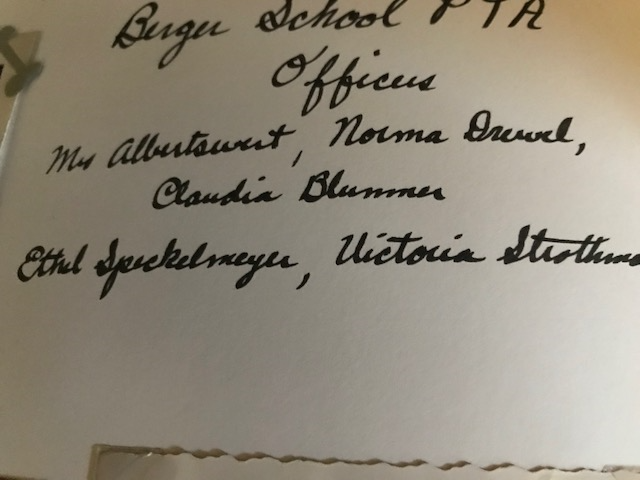 Berger School PTA
Officers
Mrs Albertswert, Norma Drewel,
Claudia Blummer
Ethel Speckelmeyer, Victoria